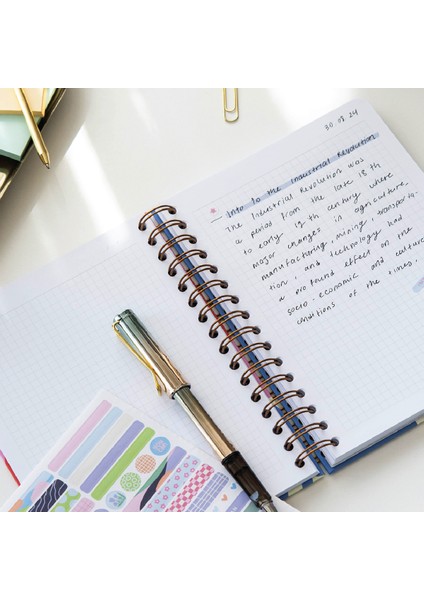 30 08 24
Into to the Industrial Revolution
The Industrial Revolution was
a period from the late 18th
to early 19th century where
major changes in agriculture,
manufacturing, mining, transporta-
tion, and technology had
a profound effect on the
socio, economic and culture
conditions of the times.